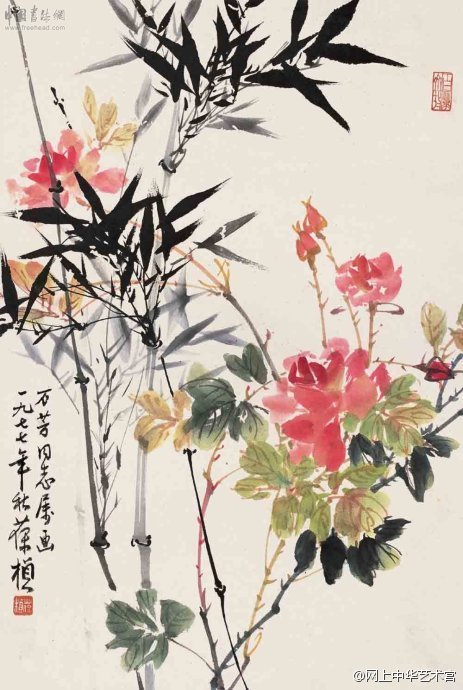 中國書法網
www.freehead.com
万芳同志属画
一九七七年秋葆楨
@网上中华艺术宫